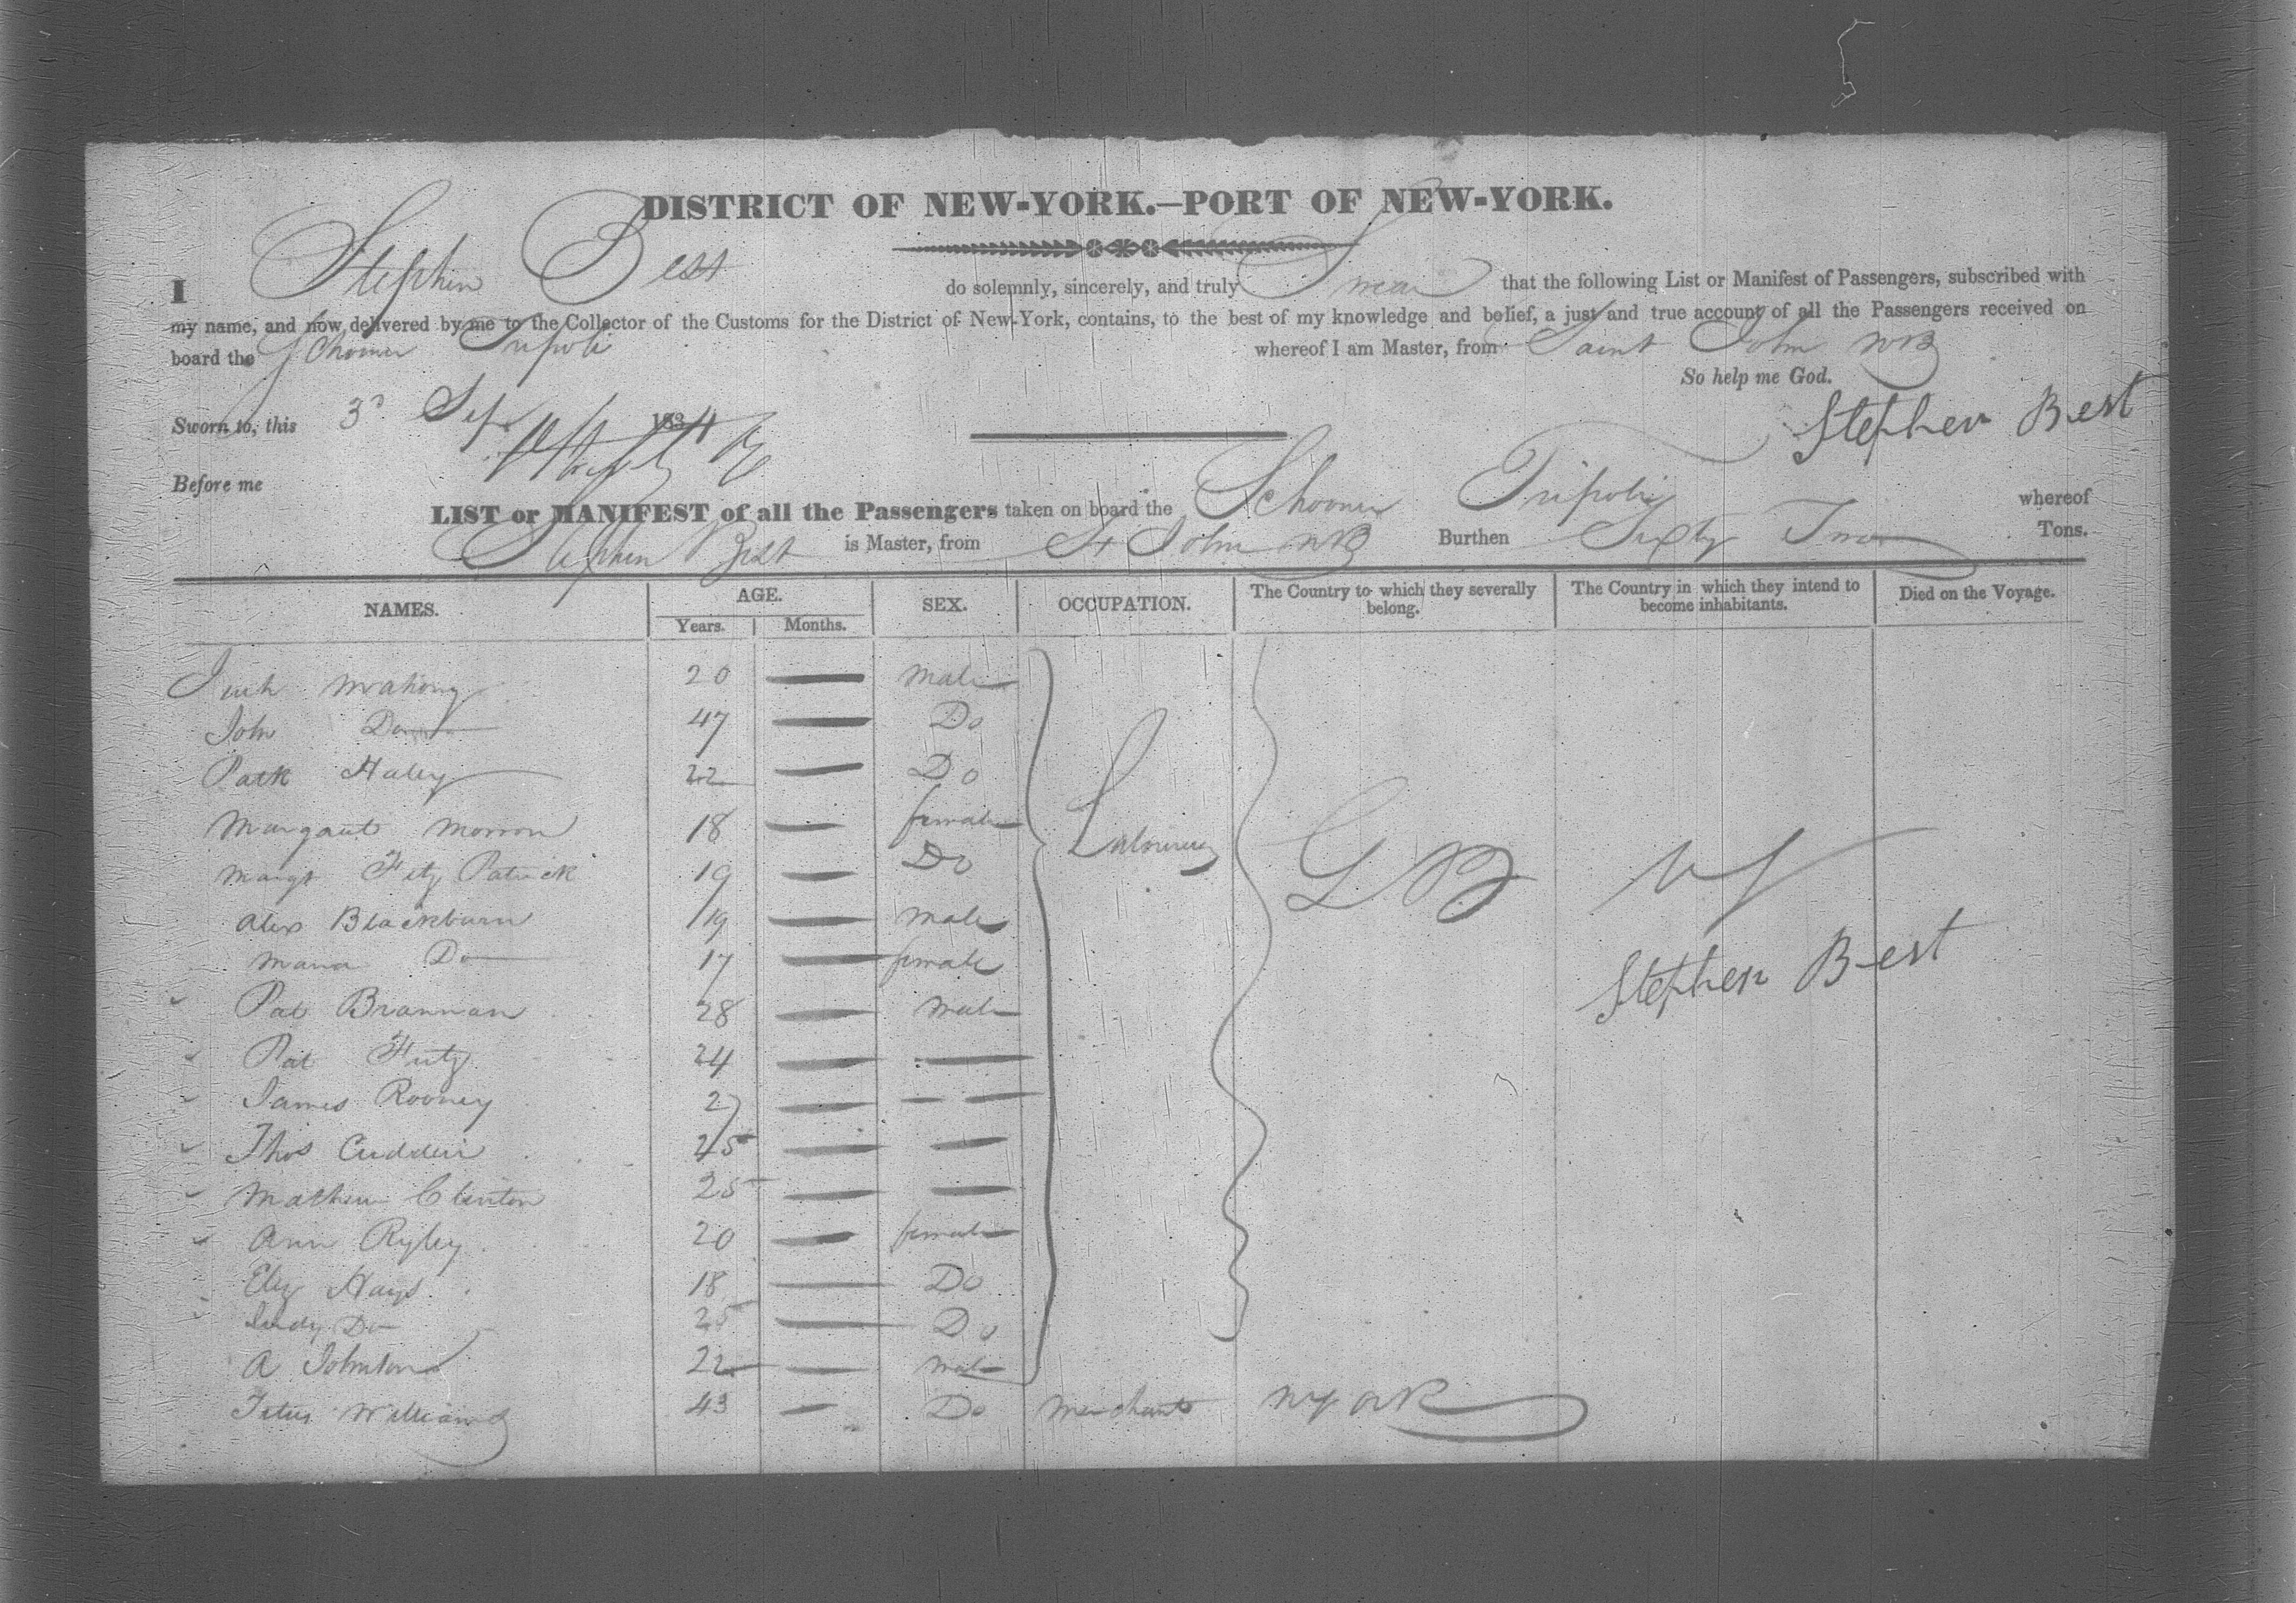 DISTRICT OF NEW-YORK.—PORT OF NEW-YORK.
I Stephen Best do solemnly, sincerely, and truly Swear that the following List or Manifest of Passengers, subscribed with
my name, and now delivered by me to the Collector of the Customs for the District of New-York, contains, to the best of my knowledge and belief, a just and true account of all the Passengers received on
board the Schooner Tripoli whereof I am Master, from Saint John NB
So help me God.
Sworn to, this 3d Sepr 1834
Stephen Best
Before me
LIST or MANIFEST of all the Passengers taken on board the Schooner Tripoli whereof
Stephen Best is Master, from St John NB Burthen Sixty Tons.
NAMES. AGE. SEX. OCCUPATION. The Country to which they severally belong. The Country in which they intend to become inhabitants. Died on the Voyage.
Years. Months.
Mahony 20 — male
John Do 47 — Do
Patk Haley 22 — Do
Margaret Morron 18 — female Labourers GB
Margt Fitz Patrick 19 — Do
Alex Blackburn 19 — male
Maria Do 17 — female
Stephen Best
Pat Brannan 28 — male
Pat 24 — —
James Rooney 27 — —
Thos 45 — —
Mathew Clinton 25 — —
Ann Ryley 20 — female
Eliz Hays 18 — Do
Judy Do 25 — Do
A Johnston 22 — male
Titus Williams 43 — Do Merchant NYork